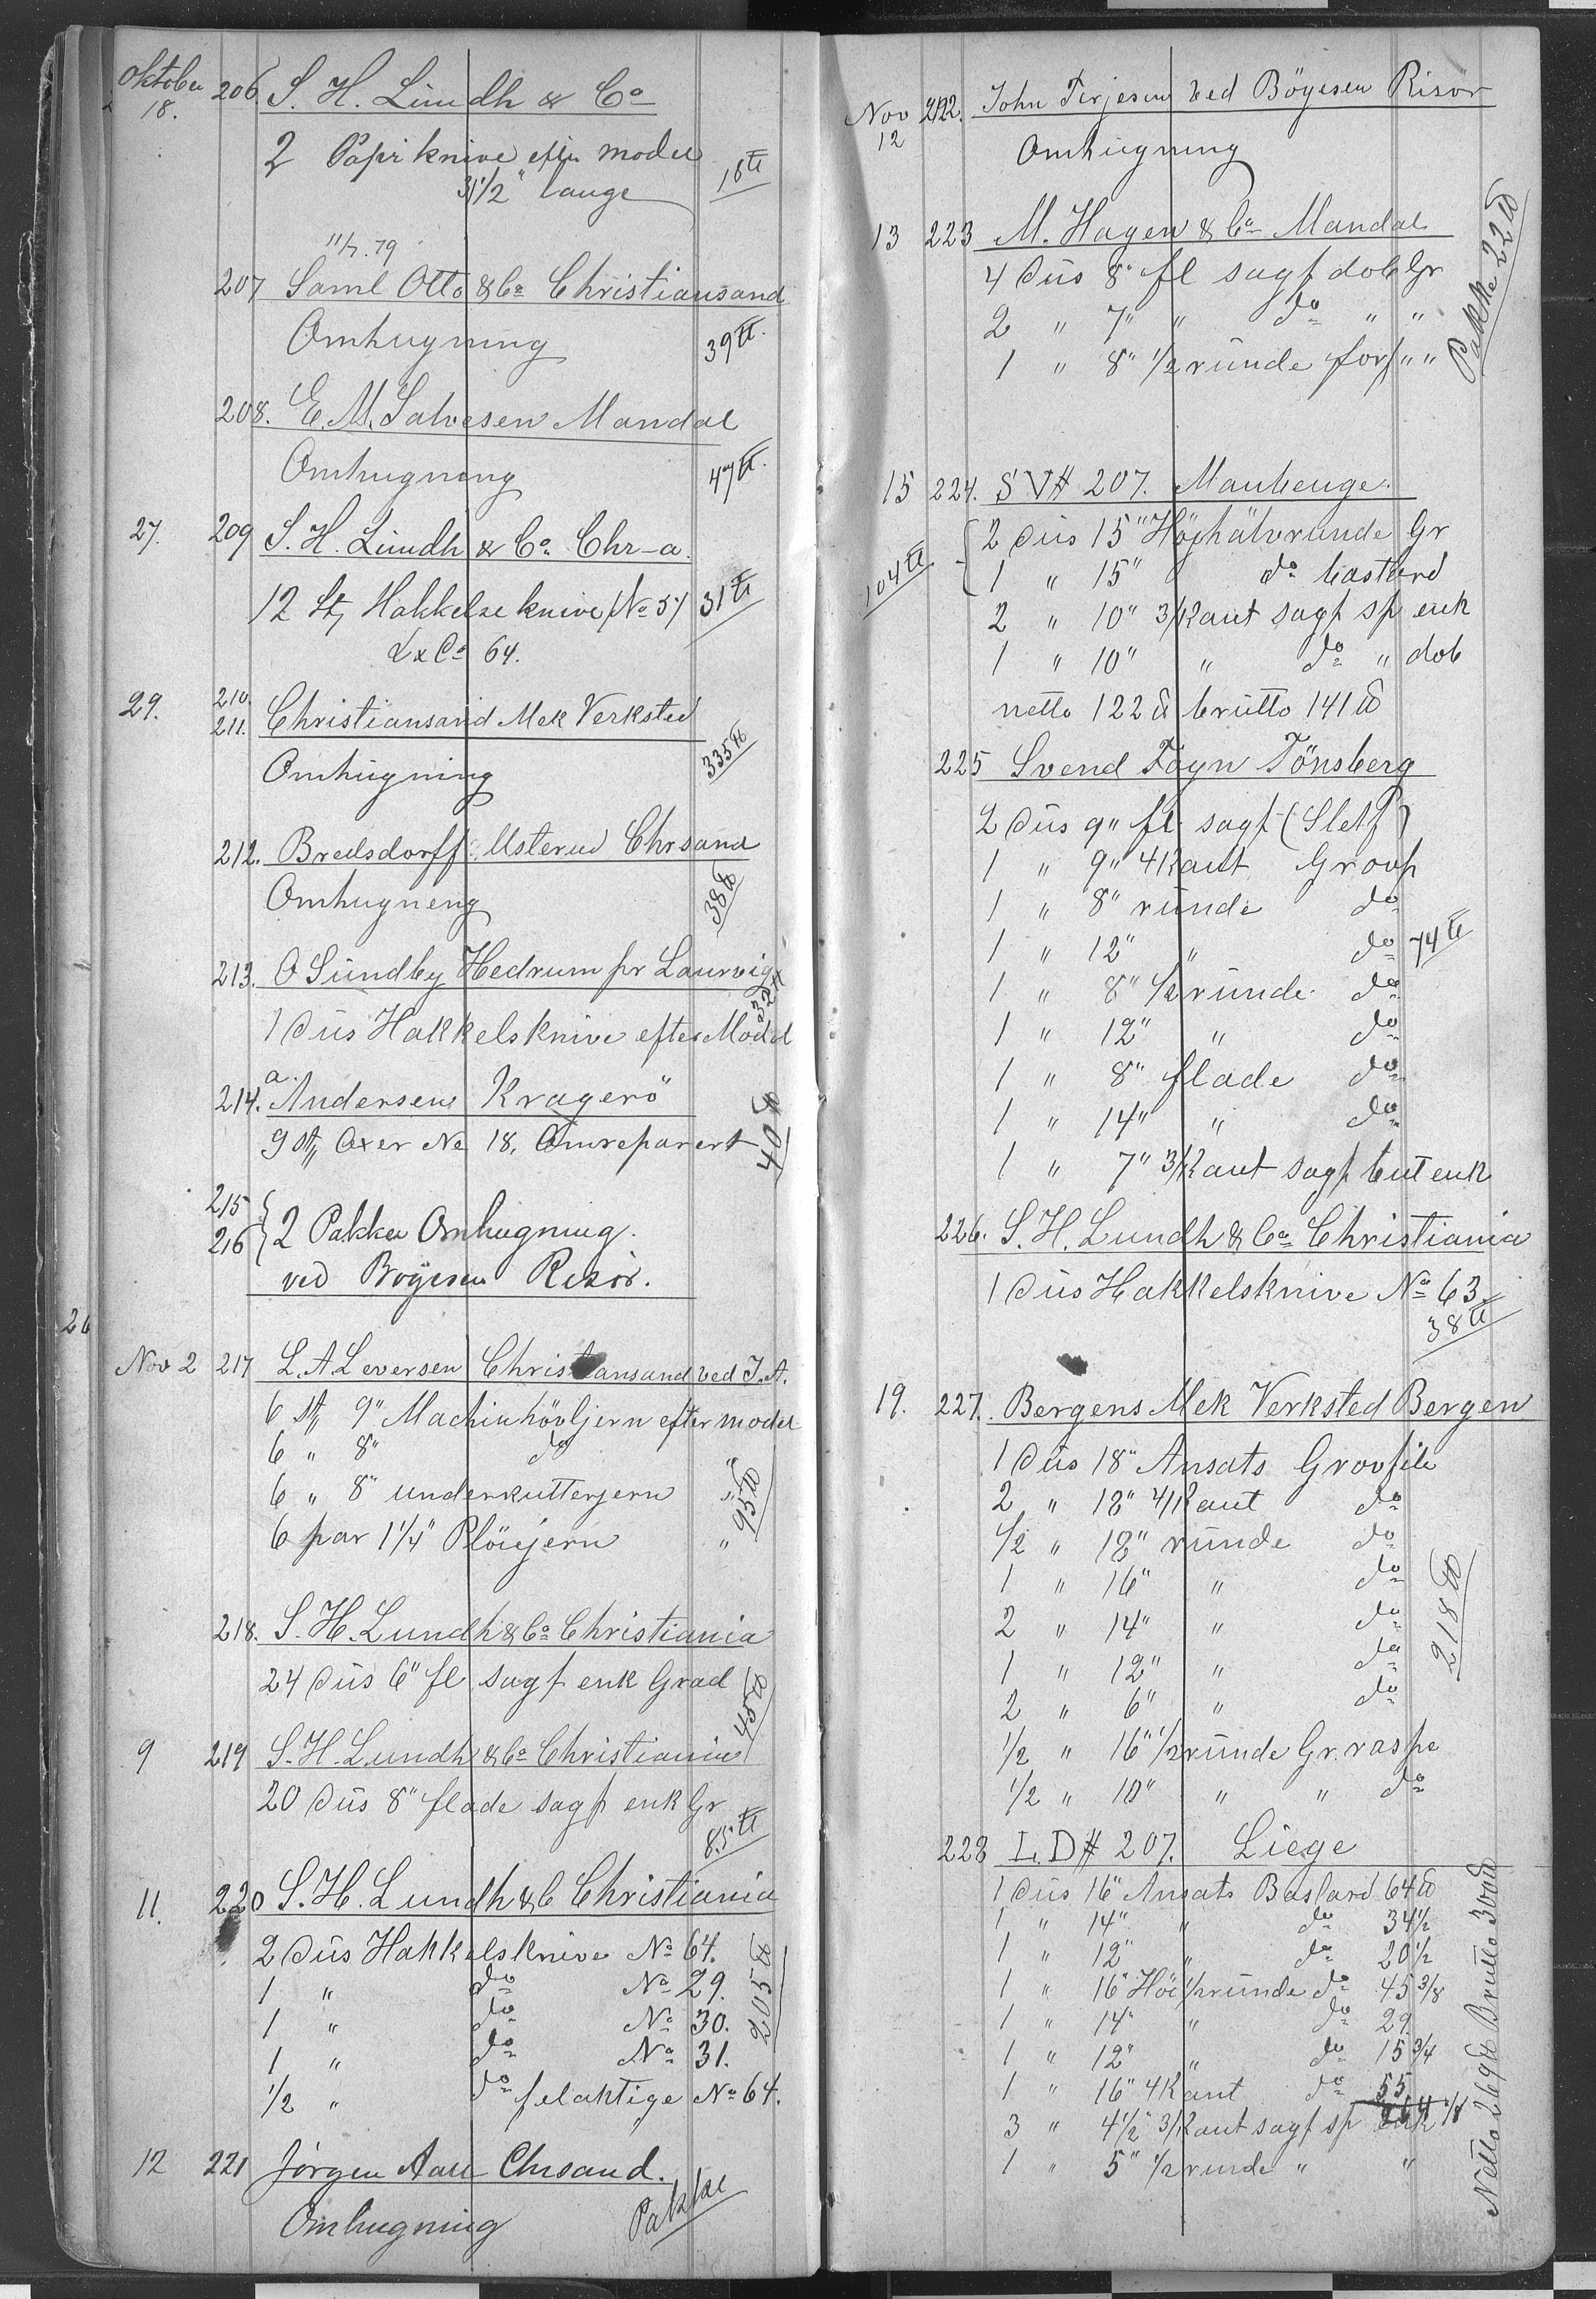 Oktober 18. 206. S. H. Lundh & Co
2 Papirknive efter model
31 1/2" lange 18 ℔
11/7. 79
207 Saml Otto & Co Christiansand
Omhugning 39 ℔.
208. E. M. Salvesen Mandal
Omhugning 47 ℔.
27. 209 S. H. Lundh & Co. Chr-a.
12 St, Hakkelse knive No 57 31 ℔
L & Co 64.
29. 210.
211. Christiansand Mek Verksted
Omhugning 335 ℔
212. Bredsdorff Usterud Chrsand
Omhugneng 38 ℔
213. O Sundby Hedrum pr Laurvig
32 ℔
1 Dus Hakkelsknive efter Model
214. a. Andersens Kragerö
9 st, Oxer No 18. Omreparert 40 ℔
215
216 } 2 Pakker Omhugning.
ved Boyesen Risör.
26
Nov 2 217 L. A. Leversen Christiansand ved J. A.
6 st, 9" Machinhövljern efter model
6 " 8" do "
6 " 8" underkutterjern "
95 ℔
6 par 1 1/4" Plöiejern "
218. S. H. Lundh & Co Christiania
24 Dus 6" fl sagf enk Grad
45 ℔
9 219 S. H. Lundh & Co Christiania
20 Dus 8" flade sagf enk Gr
85 ℔
11. 220 S. H. Lundh & C Christiania
2 Dus Hakkelsknive No 64.
1 " do No 29.
205 ℔
1 " do No 30.
1 " do No 31.
1/2 " do felaktige No 64.
12 221 Jörgen Aall Chrsand.
Omhugning Pakke
Nov 12 222. John Terjesen ved Böyesen Risör
Omhugning
13 223 M. Hagen & Co Mandal
4 Dus 8" fl sagf dob Gr
Pakke 22 ℔
2 " 7" " do " "
1 " 8" 1/2 runde forf " "
15 224. S V # 207. Maubeuge.
2 Dus 15" Höjhalvrunde Gr
104 ℔
1 " 15" do bastard
2 " 10" 3/Kant sagf sp enk
1 " 10" " do " dob
netto 122 ℔ brutto 141 ℔
225 Svend Foyn Tönsberg
2 Dus 9" fl sagf (Sletf)
1 " 9" 4Kant Grovf
1 " 8" runde do
1 " 12" " do 74 ℔
1 " 8" 1/2 runde do
1 " 12" " do
1 " 8" flade do
1 " 14" " do
1 " 7" 3/Kant sagf but enk
226. S. H. Lundh & Co Christiania
1 Dus Hakkelsknive No 63
38 ℔
19. 227. Bergens Mek Verksted Bergen
1 Dus 18" Ansats Grovfile
2 " 18" 4/Kant do
1/2 " 18" runde do
1 " 16" " do
2 " 14" " do
218 ℔
1 " 12" " do
2 " 6" " do
1/2 " 16" 1/2 runde Gr. raspe
1/2 " 10" " " do
228 L. D # 207. Liege
1 Dus 16" Ansats Bastard 64 ℔
1 " 14" " do 34 1/2
1 " 12" " do 20 1/2
1 " 16" Höi 1/2 runde do 45 3/8
1 " 14" " do 29.
1 " 12" " do 15 3/4
1 " 16" 4Kant do 55
3 " 4 1/2" 3/Kant sagf sp
1 " 5" 1/2 runde " "
Netto 269 ℔ Brutto 300 ℔